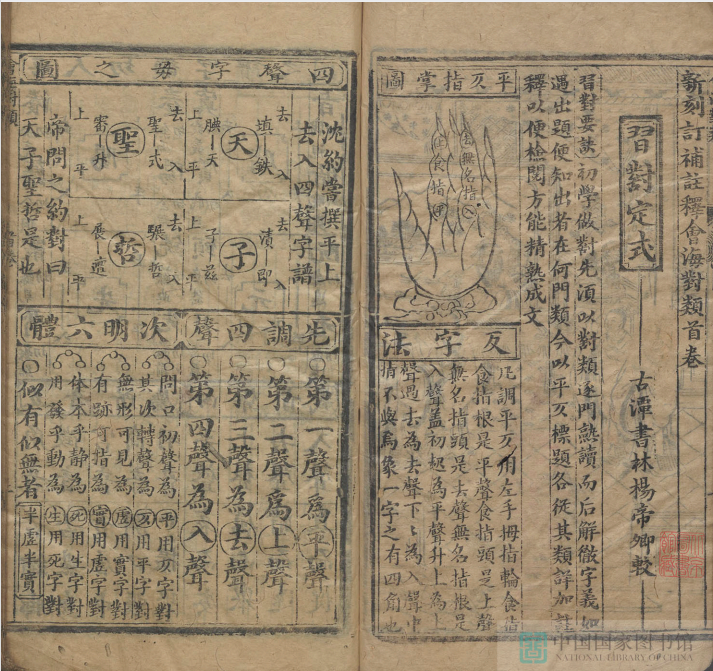 新刻訂補註釋會海對類首卷
習對定式
古潭書林楊帝卿較
習對要訣初學做對先湏以對類逐門熟讀而后觧徹字義如
遇出題便知出者在何門類今以平仄標題各從其類詳加註
釋以便檢閱方能精熟成文
平仄指掌圖
去無名指入
上食指平
仄字法
凡調平仄用左手拇指輪食指
食指根是平聲食指頭是上聲
無名指頭是去聲無名指根是
入聲蓋初起為平聲升上為上
聲過去為去聲下為入聲中
指不與焉象一字之有四角也
四聲字毋之圖
沈約嘗撰平上
去入四聲字譜
天
去 入
填 鉄
腆 天
上 平
子
去 入
漬 即
子 兹
上 平
聖
去 入
聖 式
審 升
上 平
哲
去 入
哲
上 平
帝問之約對曰
天子聖哲是也
先調四聲
第一聲為平聲
第二聲為上聲
第三聲為去聲
第四聲為入聲
次明六體
開口初聲為平用仄字對
其次轉聲為仄用平字對
無形可見為虛用實字對
有跡可指為實用虛字對
体本乎静為死用生字對
用發乎動為生用死字對
似有似無者半虛半實
中国国家图书馆
NATIONAL LIBRARY OF CHINA